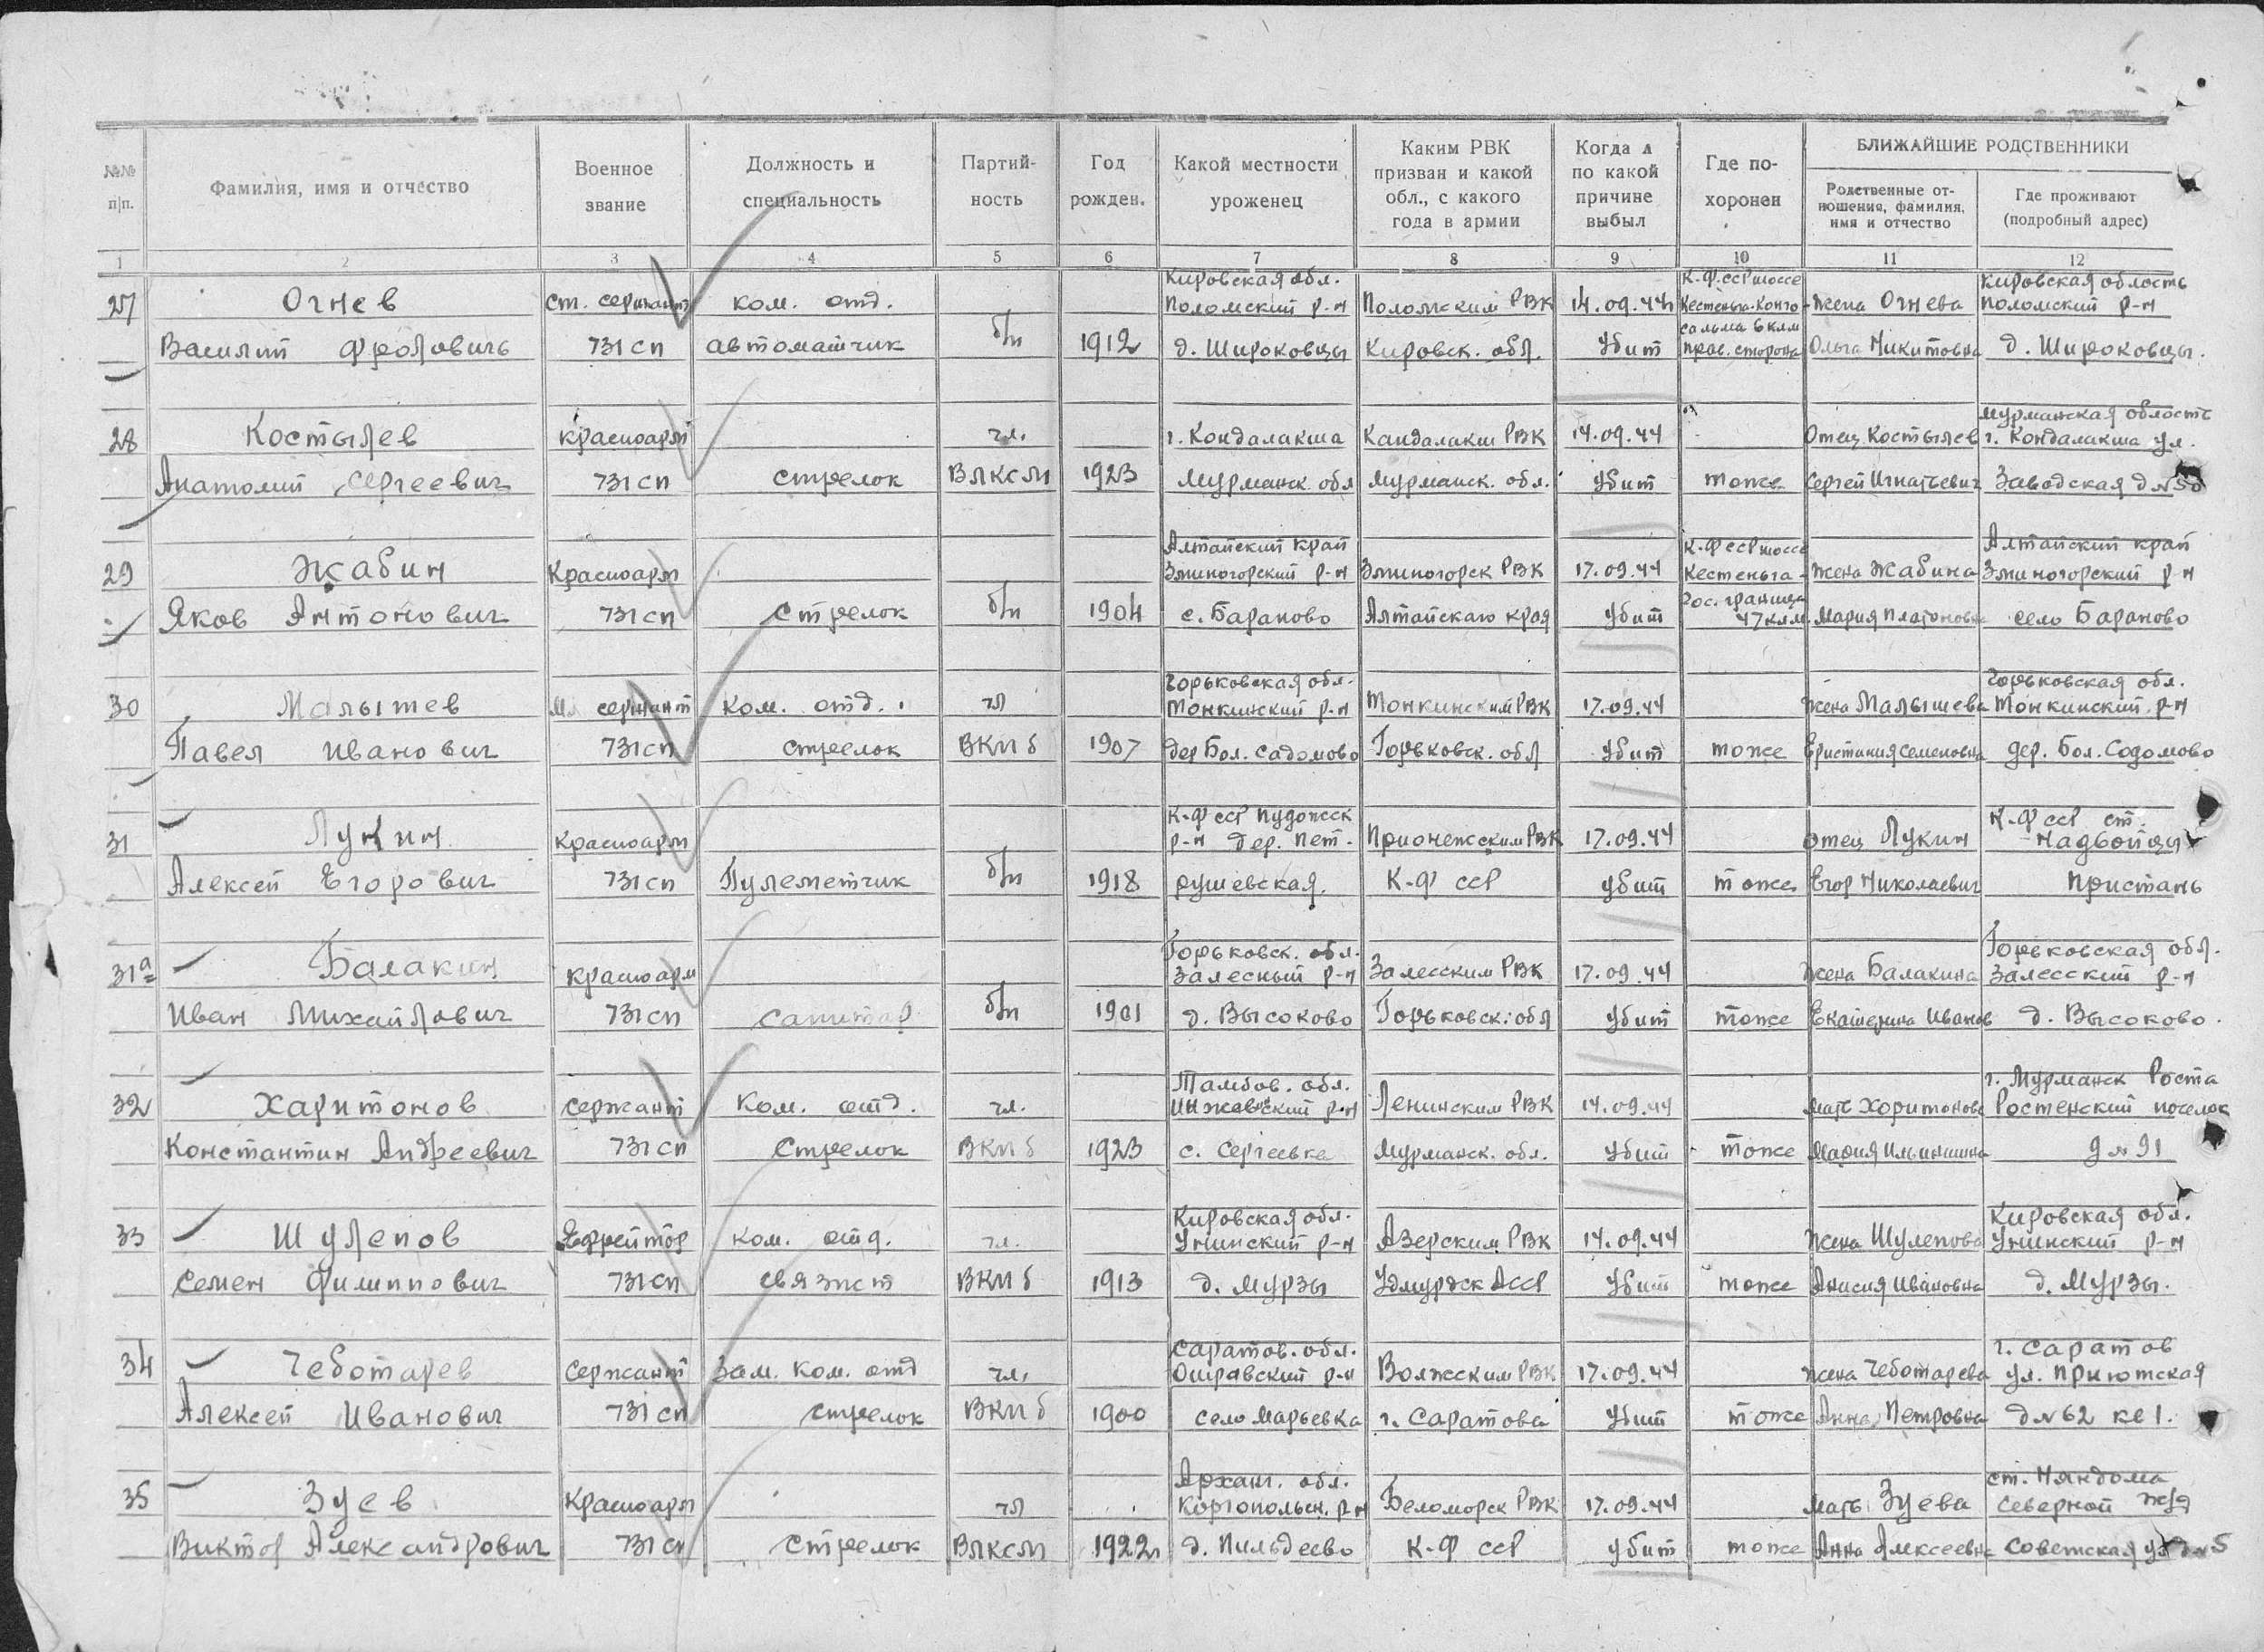 №№ п|п.
Фамилия, имя и отчество
Военное звание
Должность и специальность
Партий-ность
Год рожден.
Какой местности уроженец
Каким РВК призван и какой обл., с какого года в армии
Когда и по какой причине выбыл
Где по-хоронен
БЛИЖАЙШИЕ РОДСТВЕННИКИ
Родственные от-ношения, фамилия, имя и отчество
Где проживают (подробный адрес)
1 2 3 4 5 6 7 8 9 10 11 12
Кировская обл. К.Ф.ССР шоссе Кировская область
27 Огнев ст. сержант ком. отд. Поломский р-н Поломским РВК 14.09.44 Кестеньга-Конго- жена Огнева Поломский р-н
сальма 6 клм
Василий Фролович 731 сп автоматчик б/п 1912 д. Широковцы Кировск. обл. убит прав. сторона Ольга Никитовна д. Широковцы.
Мурманская область
28 Костылев красноарм чл. г. Кондалакша Кандалакш РВК 14.09.44 Отец Костылев г. Кондалакша ул.
Анатолий Сергеевич 731 сп стрелок ВЛКСМ 1923 Мурманск. обл Мурманск. обл. убит тоже Сергей Игнатьевич Заводская д №50
Алтайский край К.Ф ССР шоссе Алтайский край
29 Жабин Красноарм Змеиногорский р-н Змеиногорск РВК 17.09.44 Кестеньга- жена Жабина Змеиногорский р-н
гос. граница
Яков Антонович 731 сп Стрелок б/п 1904 с. Бараново Алтайского края убит 47 клм. Мария Платоновна село Бараново
Горьковская обл. Горьковская обл.
30 Малышев Мл сержант Ком. отд. чл Тонкинский р-н Тонкинским РВК 17.09.44 жена Малышева Тонкинский р-н
Павел Иванович 731 сп стрелок ВКПб 1907 дер Бол. Садомово Горьковск. обл убит тоже Еристиния Семеновна дер. Бол. Содомово
К-Ф ССР Пудожск К-Ф ССР ст.
31 Лукин Красноарм р-н дер. Пет- Прионежским РВК 17.09.44 отец Лукин Надвойцы
Алексей Егорович 731 сп Пулеметчик б/п 1918 рушевская. К-Ф ССР убит тоже Егор Николаевич Пристань
Горьковск. обл. Горьковская обл.
31а Балакин красноарм Залесный р-н Залесским РВК 17.09.44 жена Балакина Залесский р-н
Иван Михайлович 731 сп санитар б/п 1901 д. Высоково Горьковск. обл убит тоже Екатерина Иванов д. Высоково.
Тамбов. обл. г. Мурманск Роста
32 Харитонов Сержант Ком. отд. чл. Инжавский р-н Ленинским РВК 14.09.44 Мать Харитонова Ростенский поселок
Константин Андреевич 731 сп Стрелок ВКПб 1923 с. Сергеевка Мурманск. обл. убит тоже Мария Ильинишна д № 91
Кировская обл. Кировская обл.
33 Шулепов Ефрейтор ком. отд. чл. Унинский р-н Азерским РВК 14.09.44 Жена Шулепова Унинский р-н
Семен Филиппович 731 сп связист ВКПб 1913 д. Мурзы Удмурдск АССР убит тоже Анисия Ивановна д. Мурзы.
Саратов. обл. г. Саратов
34 Чеботарев Сержант Зам. ком. отд чл. р-н Волжским РВК 17.09.44 жена Чеботарева ул. Приютская
Алексей Иванович 731 сп стрелок ВКПб 1900 село Марьевка г. Саратова убит тоже Анна Петровна д № 62 кв 1.
Арханг. обл. ст. Няндома
35 Зуев Красноарм чл Коргопольск. р-н Беломорск РВК 17.09.44 Мать Зуева Северной ж/д
Виктор Александрович 731 сп Стрелок ВЛКСМ 1922 д. Пильдеево К-Ф ССР убит тоже Анна Алексеевна Советская ул д № 5